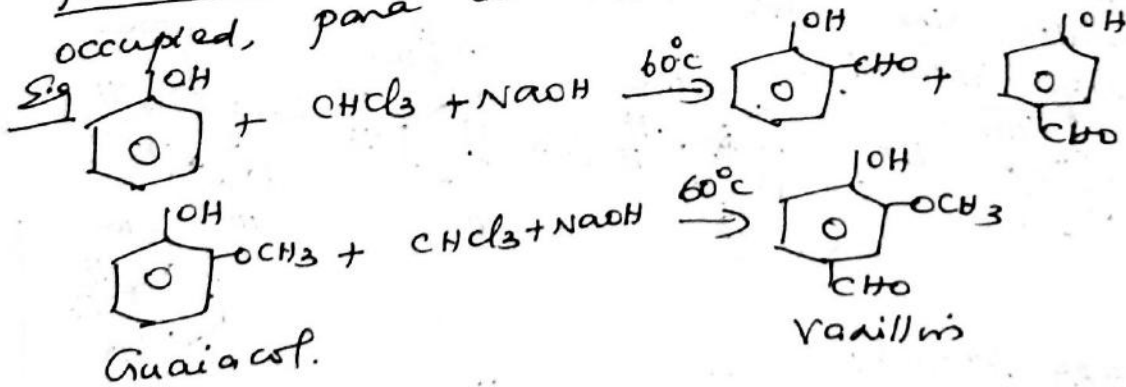 occupied, para
E.g OH + CHCl3 + NaOH 60°C → OH CHO + OH CHO
OH OCH3 + CHCl3 + NaOH 60°C → OH OCH3 CHO
Guaiacol. Vanillin